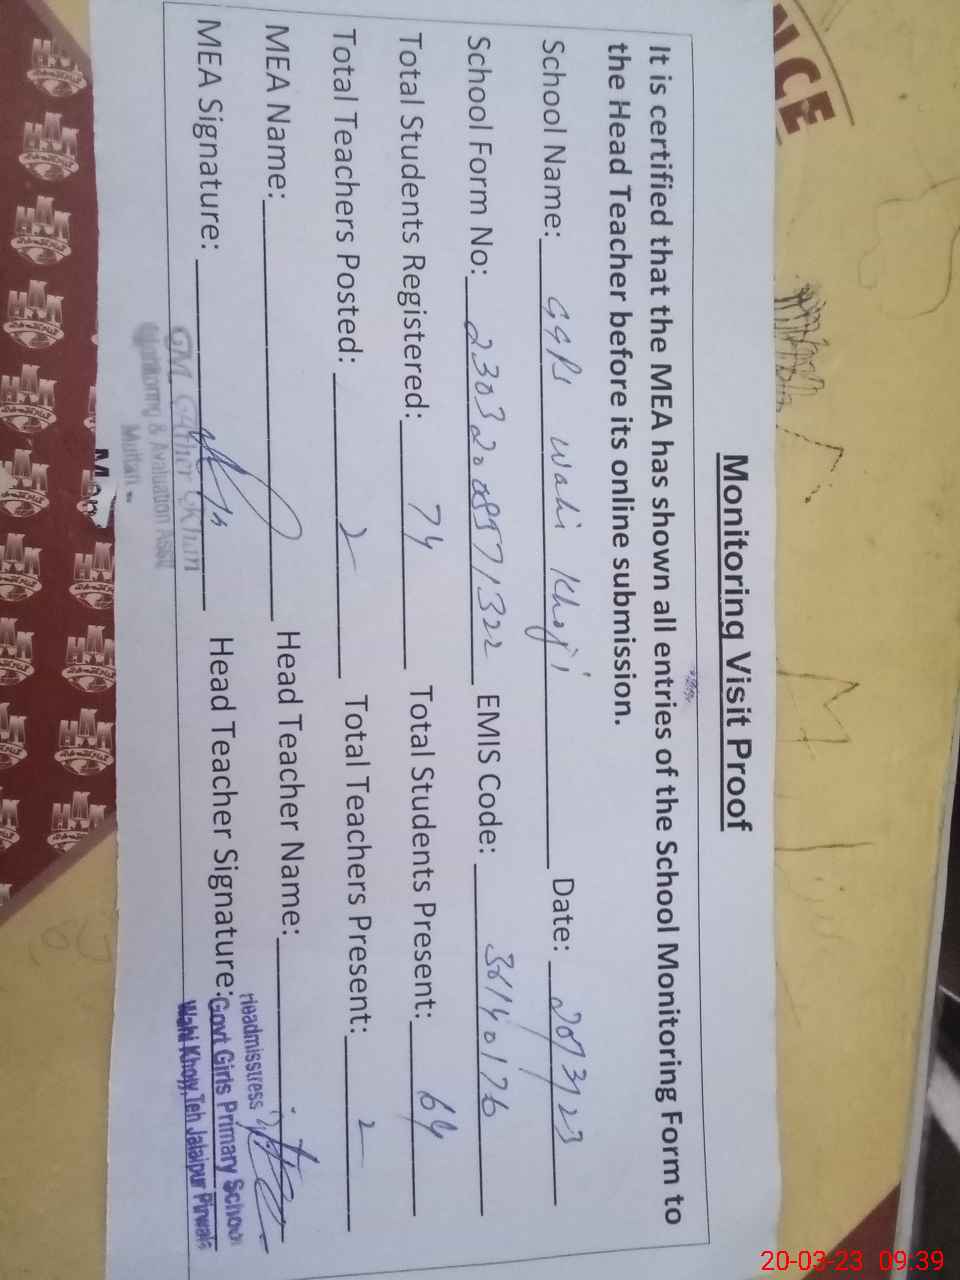 Monitoring Visit Proof
It is certified that the MEA has shown all entries of the School Monitoring Form to
the Head Teacher before its online submission.
School Name: GGPS Wahi Khoji Date: 20/3/23
School Form No: 23032008971322 EMIS Code: 36140176
Total Students Registered: 74 Total Students Present: 64
Total Teachers Posted: 2 Total Teachers Present: 2
MEA Name: Head Teacher Name:
MEA Signature: Head Teacher Signature:
Headmisstress
Govt Girls Primary School
Wahi Khojy, Teh Jalalpur Pirwala
Monitoring & Avaluation
Multan
NCE
20-03-23 09:39